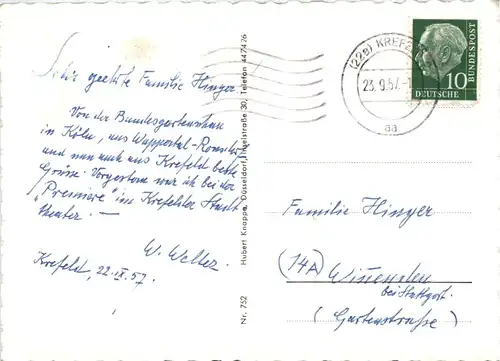 Sehr geehrte Familie Hinger
Von der Bundesgartenschau
in Köln, aus Wuppertal-Ronsdorf
und nun auch aus Krefeld beste
Grüsse. Vorgestern war ich bei der
"Premiere" im Krefelder Stadt
theater. —
W. Welter
Krefeld, 22.IX.57.
Nr. 752
Hubert Knoppe, Düsseldorf, 30, Telefon 447426
(22a) KREFELD
23.9.57.-1
aa
10
DEUTSCHE
BUNDESPOST
Familie Hinger
(14A) Winnenden
bei Stuttgart.
(Gartenstraße)